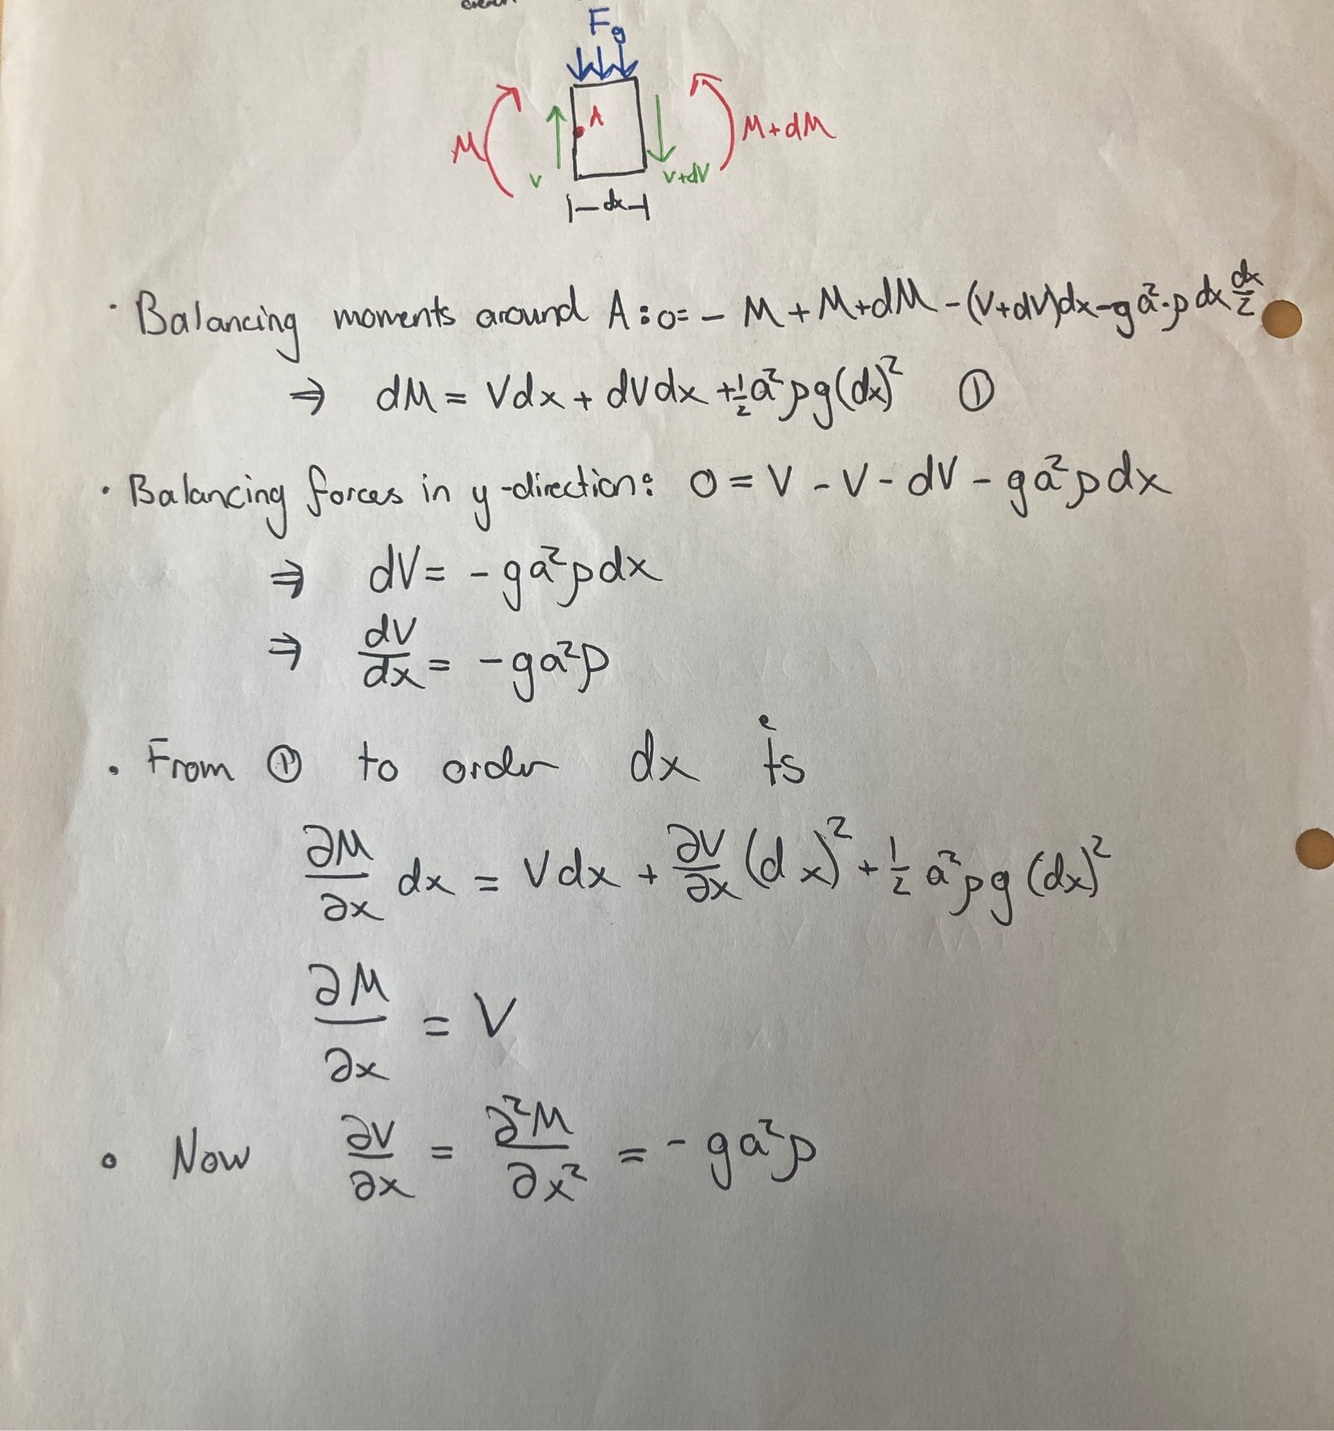 F_g
A
M
M+dM
V
V+dV
|—dx—|
· Balancing moments around A: 0= - M + M+dM - (V+dV)dx - ga²·ρ dx dx/2
⇒ dM = Vdx + dVdx + 1/2 a²ρg(dx)² ①
· Balancing forces in y-direction: 0 = V - V - dV - ga²ρdx
⇒ dV = - ga²ρdx
⇒ dV/dx = - ga²ρ
· From ① to order dx is
∂M/∂x dx = Vdx + ∂V/∂x (dx)² + 1/2 a²ρg (dx)²
∂M/∂x = V
∘ Now ∂V/∂x = ∂²M/∂x² = - ga²ρ